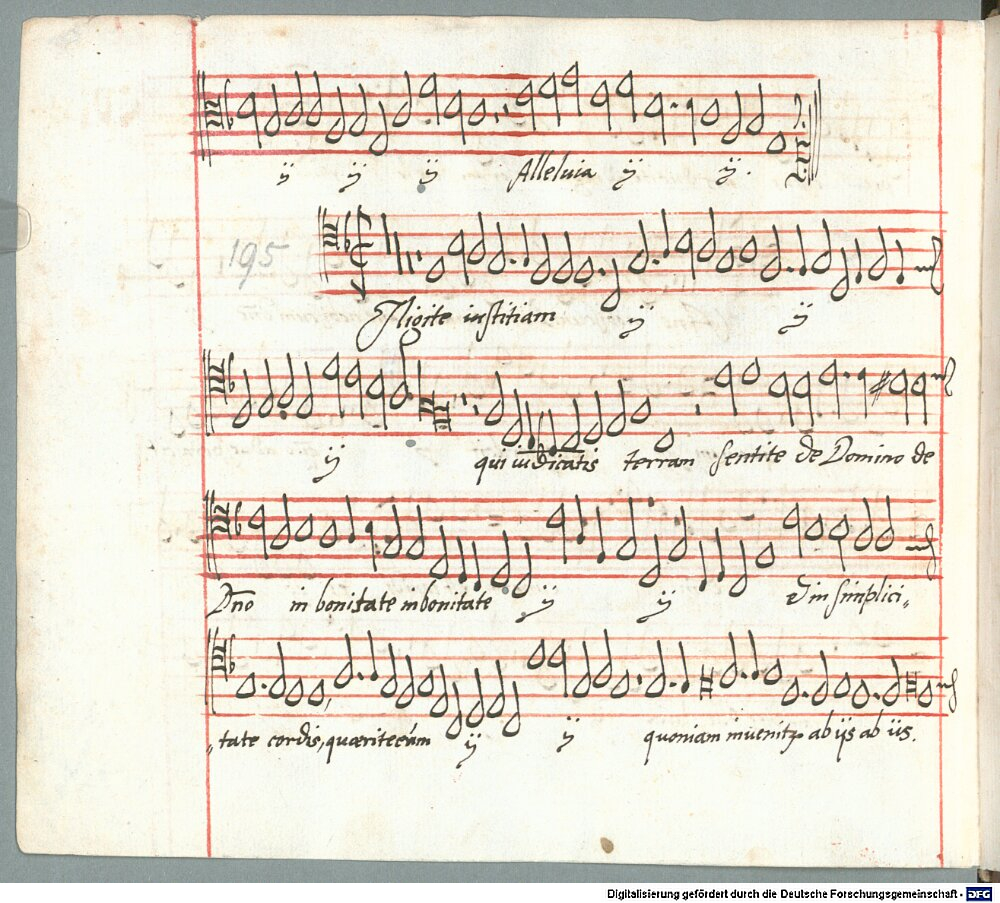 ij ij ij Alleluia ij ij.
195
Iligite iustitiam ij ij
ij qui iudicatis terram sentite de Domino de
Dño in bonitate in bonitate ij ij & in simplici„
„tate cordis, quærite eúm ij ij quoniam invenitʒ ab ijs ab ijs.
Digitalisierung gefördert durch die Deutsche Forschungsgemeinschaft - DFG